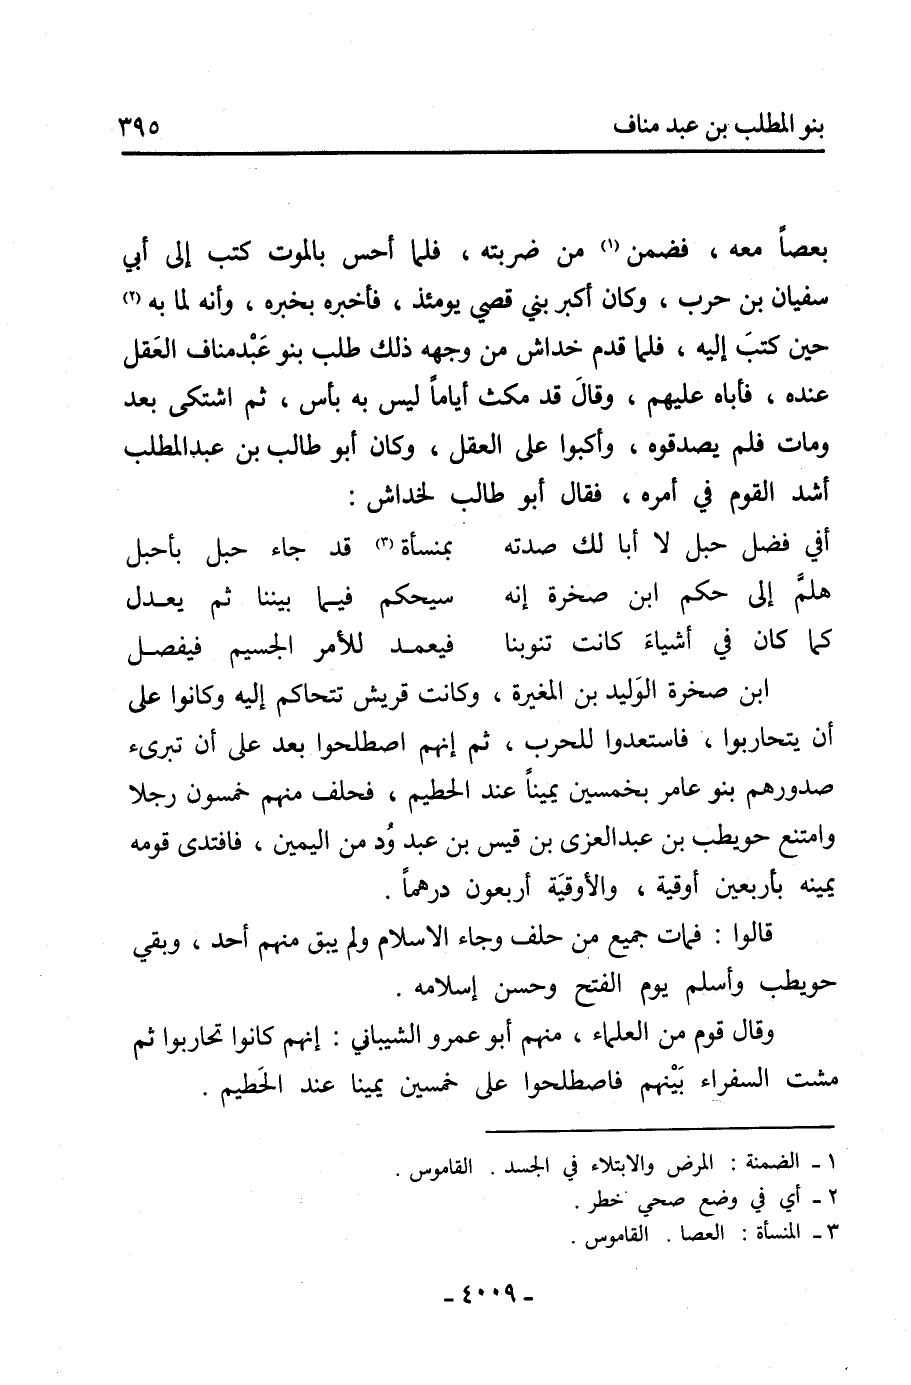 بنو المطلب بن عبد مناف ٣٩٥
بعصاً معه ، فضمن (١) من ضربته ، فلما أحس بالموت كتب إلى أبي
سفيان بن حرب ، وكان أكبر بني قصي يومئذ ، فأخبره بخبره ، وأنه لما به (٢)
حين كتبَ إليه ، فلما قدم خداش من وجهه ذلك طلب بنو عَبْدمناف العَقل
عنده ، فأباه عليهم ، وقالَ قد مكث أياماً ليس به بأس ، ثم اشتكى بعد
ومات فلم يصدقوه ، وأكبوا على العقل ، وكان أبو طالب بن عبدالمطلب
أشد القوم في أمره ، فقال أبو طالب لخداش :
أفي فضل حبل لا أبا لك صدته بمنسأة (٣) قد جاء حبل بأحبل
هلمَّ إلى حكم ابن صخرة إنه سيحكم فيما بيننا ثم يعدل
كما كان في أشياءَ كانت تنوبنا فيعمد للأمر الجسيم فيفصل
ابن صخرة الوَليد بن المغيرة ، وكانت قريش تتحاكم إليه وكانوا على
أن يتحاربوا ، فاستعدوا للحرب ، ثم إنهم اصطلحوا بعد على أن تبرىء
صدورهم بنو عامر بخمسين يميناً عند الحطيم ، فحلف منهم خمسون رجلا
وامتنع حويطب بن عبدالعزى بن قيس بن عبد وُد من اليمين ، فافتدى قومه
يمينه بأربعين أوقية ، والأوقيَة أربعون درهماً .
قالوا : فمات جميع من حلف وجاء الاسلام ولم يبق منهم أحد ، وبقي
حويطب وأسلم يوم الفتح وحسن إسلامه .
وقال قوم من العلماء ، منهم أبو عمرو الشيباني : إنهم كانوا تحاربوا ثم
مشت السفراء بَيْنهم فاصطلحوا على خمسين يمينا عند الحَطيم .
١ ـ الضمنة : المرض والابتلاء في الجسد . القاموس .
٢ ـ أي في وضع صحي خطر .
٣ ـ المنسأة : العصا . القاموس .
ـ ٤٠٠٩ ـ